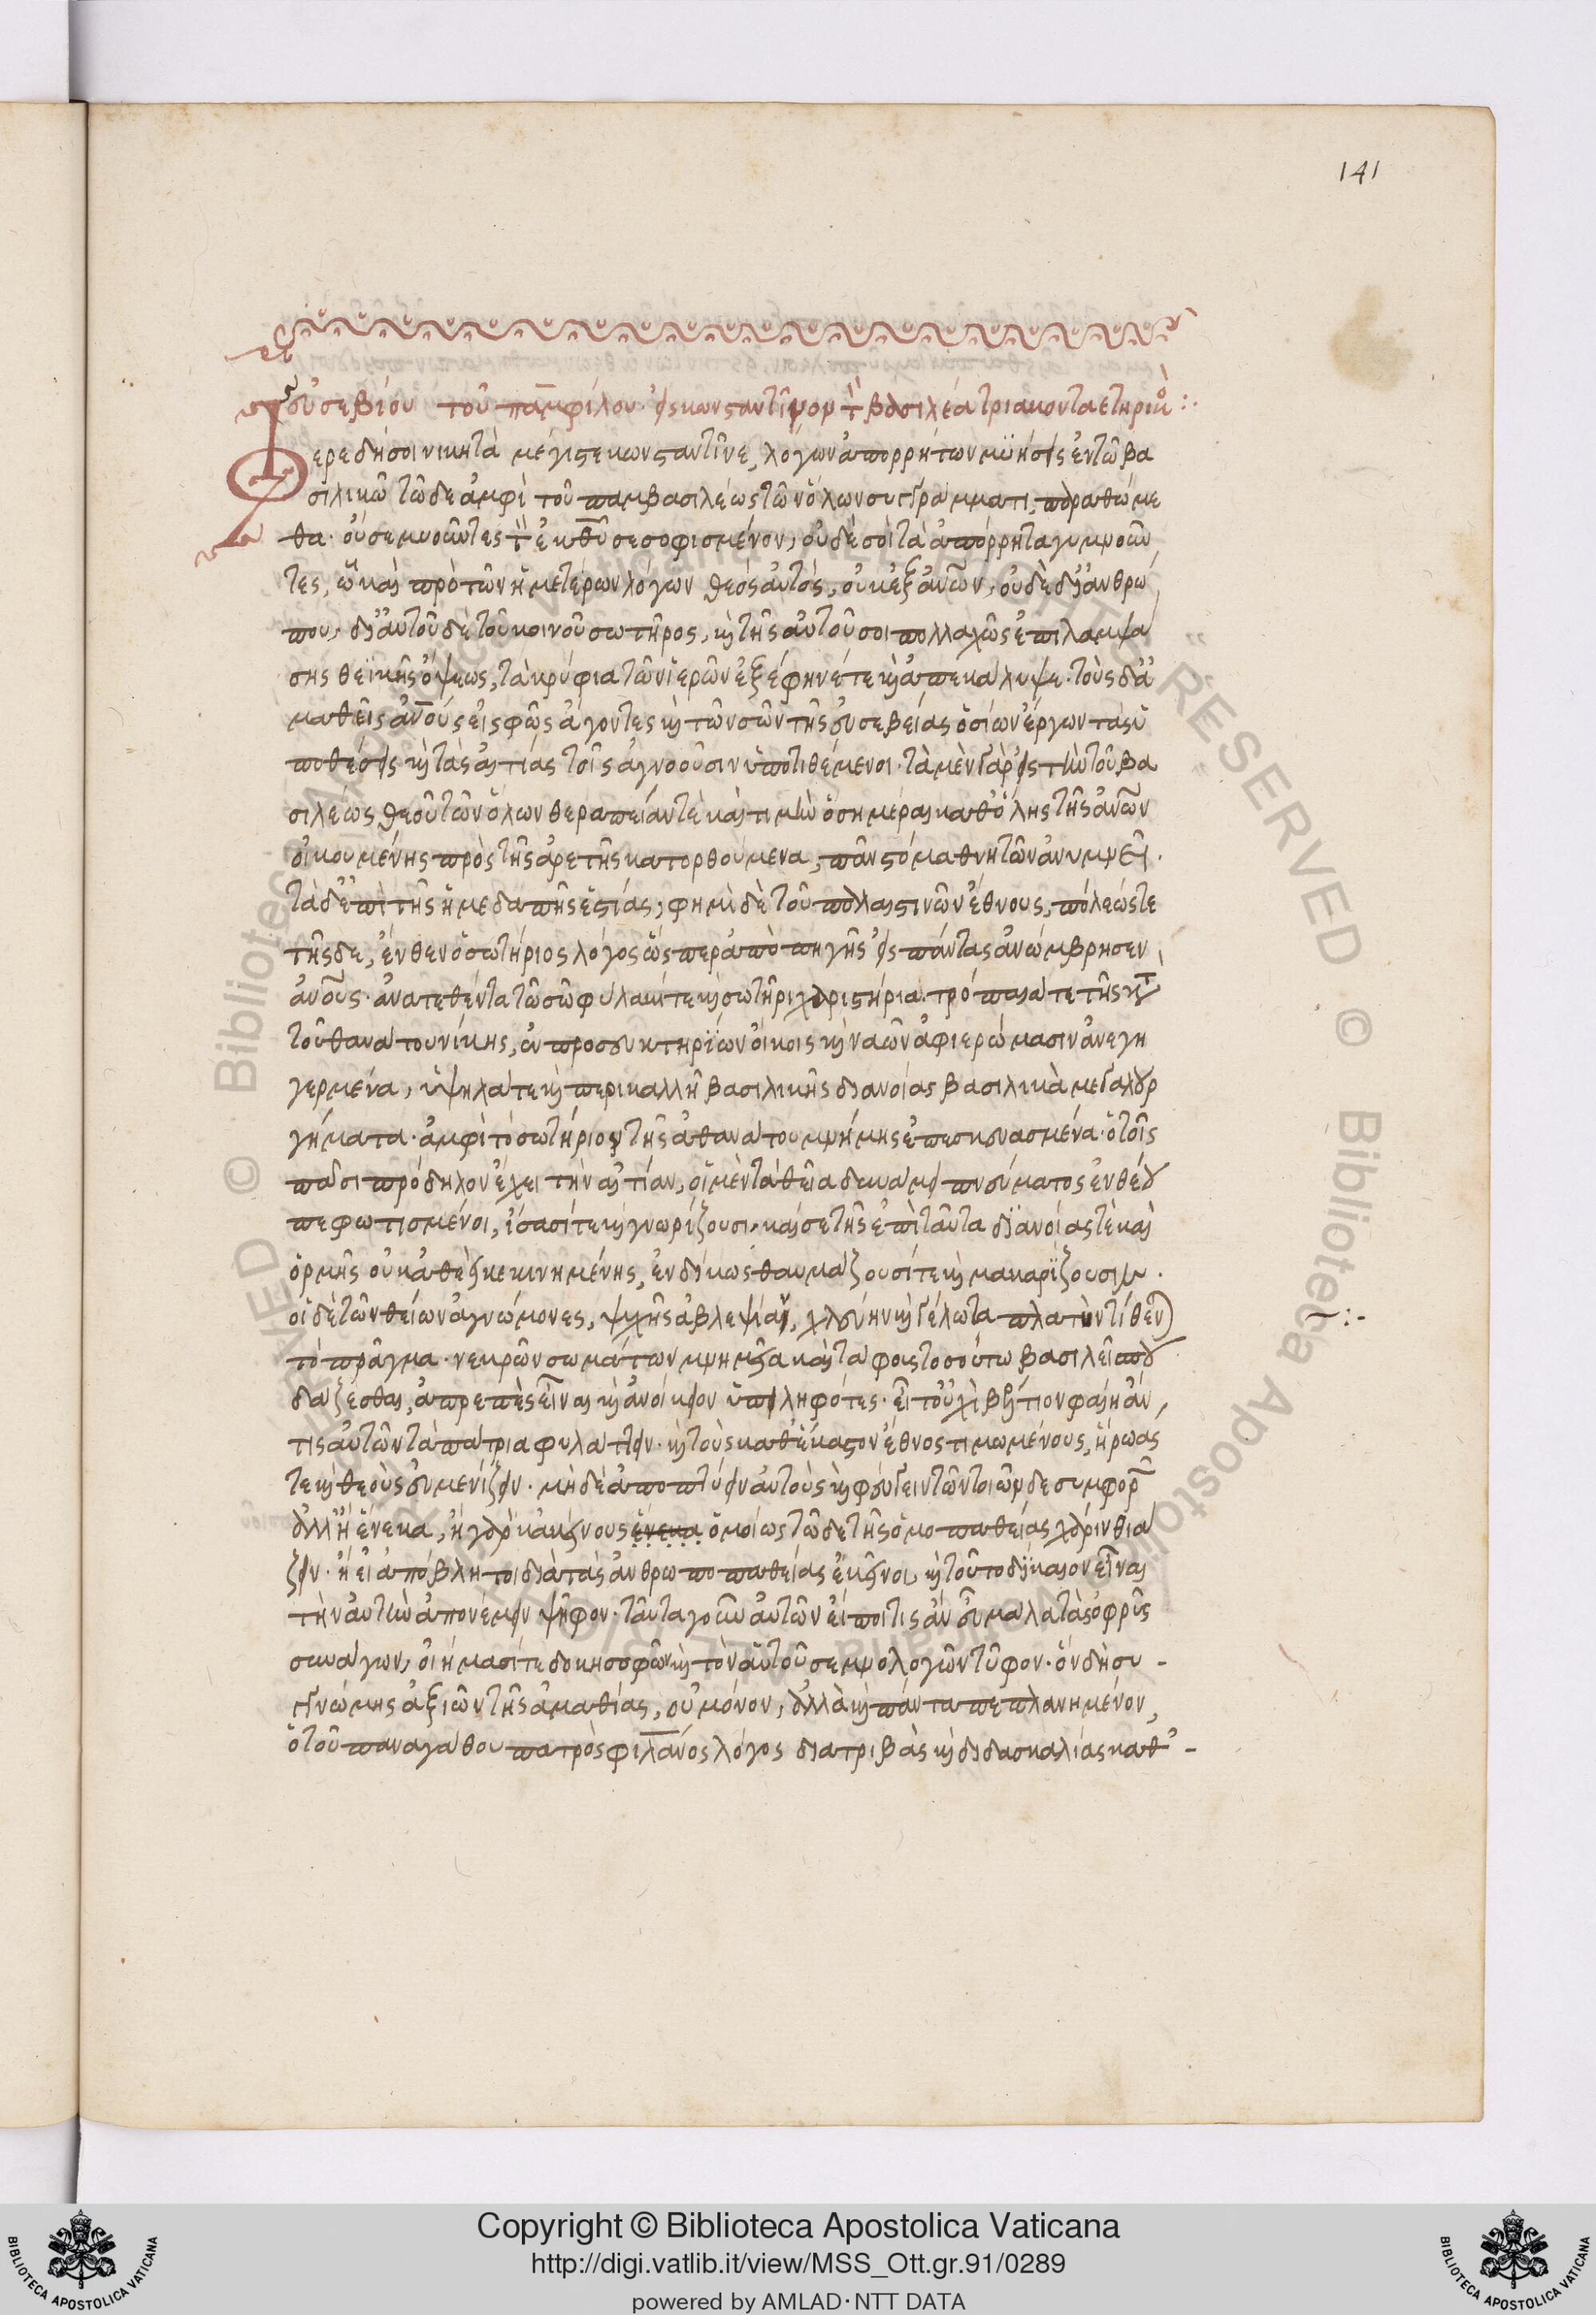 141
Εὐσεβίου τοῦ παμφίλου· εἰς κωνσταντῖνον τὸν βασιλέα τριακονταετηρικός :·
Φέρε δή σοι νικητὰ μέγιστε κωνσταντῖνε, λόγων ἀπορρήτων μυήσεις ἐν τῷ βα
σιλικῷ τῷδε ἀμφὶ τοῦ παμβασιλέως τῶν ὅλων συγγράμματι, παραθώμε
θα· οὐ σε μυοῦντες τὸν ἐκ θυ σεσοφισμένον, οὐδέ σοι τὰ ἀπόρρητα γυμνοῦν
τες, ᾧ καὶ πρὸ τῶν ἡμετέρων λόγων θεὸς αὐτὸς, οὐκ ἐξ ἀνῶν, οὐδὲ δι' ἀνθρώ
που, δι' αὐτοῦ δὲ τοῦ κοινοῦ σωτῆρος, καὶ τῆς αὐτοῦ σοι πολλαχῶς ἐπιλαμψά
σης θεϊκῆς ὄψεως, τὰ κρύφια τῶν ἱερῶν ἐξέφηνέ τε καὶ ἀπεκάλυψε· τοὺς δ' ἀ
μαθεῖς ἀνους εἰς φῶς ἄγοντες καὶ τῶν σῶν τῆς εὐσεβείας ὁσίων ἔργων τὰς ὑ
ποθέσεις καὶ τὰς αἰτίας τοῖς ἀγνοοῦσιν ὑποτιθέμενοι· τὰ μὲν γὰρ εἰς τὴν τοῦ βα
σιλέως θεοῦ τῶν ὅλων θεραπείαν τὲ καὶ τιμὴν ὁσημέραι καθ' ὅλης τῆς ἀνων
οἰκουμένης πρὸς τῆς ἀρετῆς κατορθούμενα, πᾶν στόμα θνητῶν ἀνυμνεῖ·
τὰ δ' ἐπὶ τῆς ἡμεδαπῆς ἑστίας, φημὶ δὲ τοῦ παλαιστινῶν ἔθνους, πόλεώς τε
τῆςδε, ἔνθεν ὁ σωτήριος λόγος ὥσπερ ἀπὸ πηγῆς εἰς πάντας ἀνώμβρησεν
ἀνους· ἀνατεθέντα τῷ σῷ φύλακί τε καὶ σωτῆρι χαριστήρια τρόπαιά τε τῆς κατὰ
τοῦ θανάτου νίκης, ἐν προσευκτηρίων οἴκοις καὶ ναῶν ἀφιερώμασιν ἀνεγη
γερμένα, ὑψηλά τε καὶ περικαλλῆ βασιλικῆς διανοίας βασιλικὰ μεγαλουρ
γήματα· ἀμφὶ τὸ σωτήριον τῆς ἀθανάτου μνήμης ἐπεσκευασμένα· ὃ τοῖς
πᾶσι πρόδηλον ἔχει τὴν αἰτίαν, οἱ μὲν τὰ θεῖα δυνάμει πνεύματος ἐνθέου
πεφωτισμένοι, ἴσασί τε καὶ γνωρίζουσι, καί σε τῆς ἐπὶ ταῦτα διανοίας τὲ καὶ
ὁρμῆς οὐκ ἀθεεὶ κεκινημένης, ἐνδίκως θαυμάζουσί τε καὶ μακαρίζουσιν·
οἱ δὲ τῶν θείων ἀγνώμονες, ψυχῆς ἀβλεψίᾳ, χλεύην καὶ γέλωτα πλατὺν τίθενται
τὸ πρᾶγμα· νεκρῶν σωμάτων μνημεῖα καὶ τάφοις τοσούτῳ βασιλεῖ σπου
δάζεσθαι, ἀπρεπὲς εἶναι καὶ ἀνοίκειον ὑπειληφότες· εἶτ' οὐχὶ βέλτιον φαίη ἄν,
τις αὐτῶν τὰ πάτρια φυλάττειν· καὶ τοὺς καθ' ἕκαστον ἔθνος τιμωμένους, ἥρωας
τε καὶ θεοὺς εὐμενίζειν· μὴ δὲ ἀποπτύειν αὐτοὺς καὶ φεύγειν τῶν τοιῶνδε συμφορῶν
ἀλλ' ἢ ἕνεκα, ἢ γὰρ κἀκείνους ἕνεκα ὁμοίως τῶδε τῆς ὁμοπαθείας χάριν θειά
ζειν· ἢ εἰ ἀπόβλητοι διὰ τὰς ἀνθρωποπαθείας ἐκεῖνοι καὶ τοῦτο δίκαιον εἶναι
τὴν αὐτὴν ἀπονέμειν ψῆφον· ταῦτα γοῦν αὐτῶν εἴποι τις ἂν εὖ μάλα τὰς ὀφρῦς
συνάγων, οἰήμασί τε δοκησοφῶν καὶ τὸν αὑτοῦ σεμνολογῶν τῦφον· ὃν δὴ συ -
γγνώμης ἀξιῶν τῆς ἀμαθίας, οὐ μόνον, ἀλλὰ καὶ πάντα πεπλανημένον,
ὁ τοῦ παναγάθου πατρὸς φιλανος λόγος διατριβὰς καὶ διδασκαλίας καθ' -
Copyright © Biblioteca Apostolica Vaticana
http://digi.vatlib.it/view/MSS_Ott.gr.91/0289
powered by AMLAD·NTT DATA